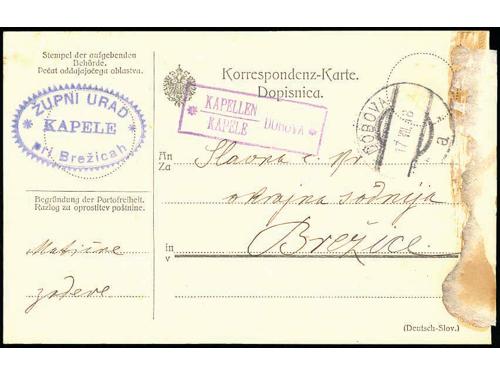 Stempel der aufgebenden
Behörde.
Pečat oddajajočega oblastva.
ŽUPNI URAD
KAPELE
pri Brežicah
Begründung der Portofreiheit.
Razlog za oprostitev poštnine.
Matične
zadeve
Korrespondenz-Karte.
Dopisnica.
KAPELLEN
KAPELE
DOBOVA
DOBOVA
17 VII 18
a
An
Za
Slavna c. kr.
okrajna sodnija
in
v
Brežice
(Deutsch-Slov.)